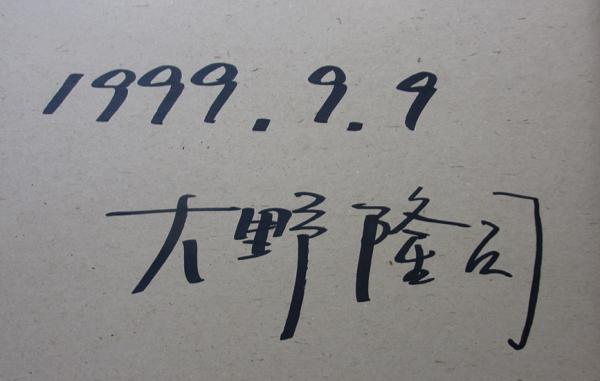 1999.9.9
大野隆司